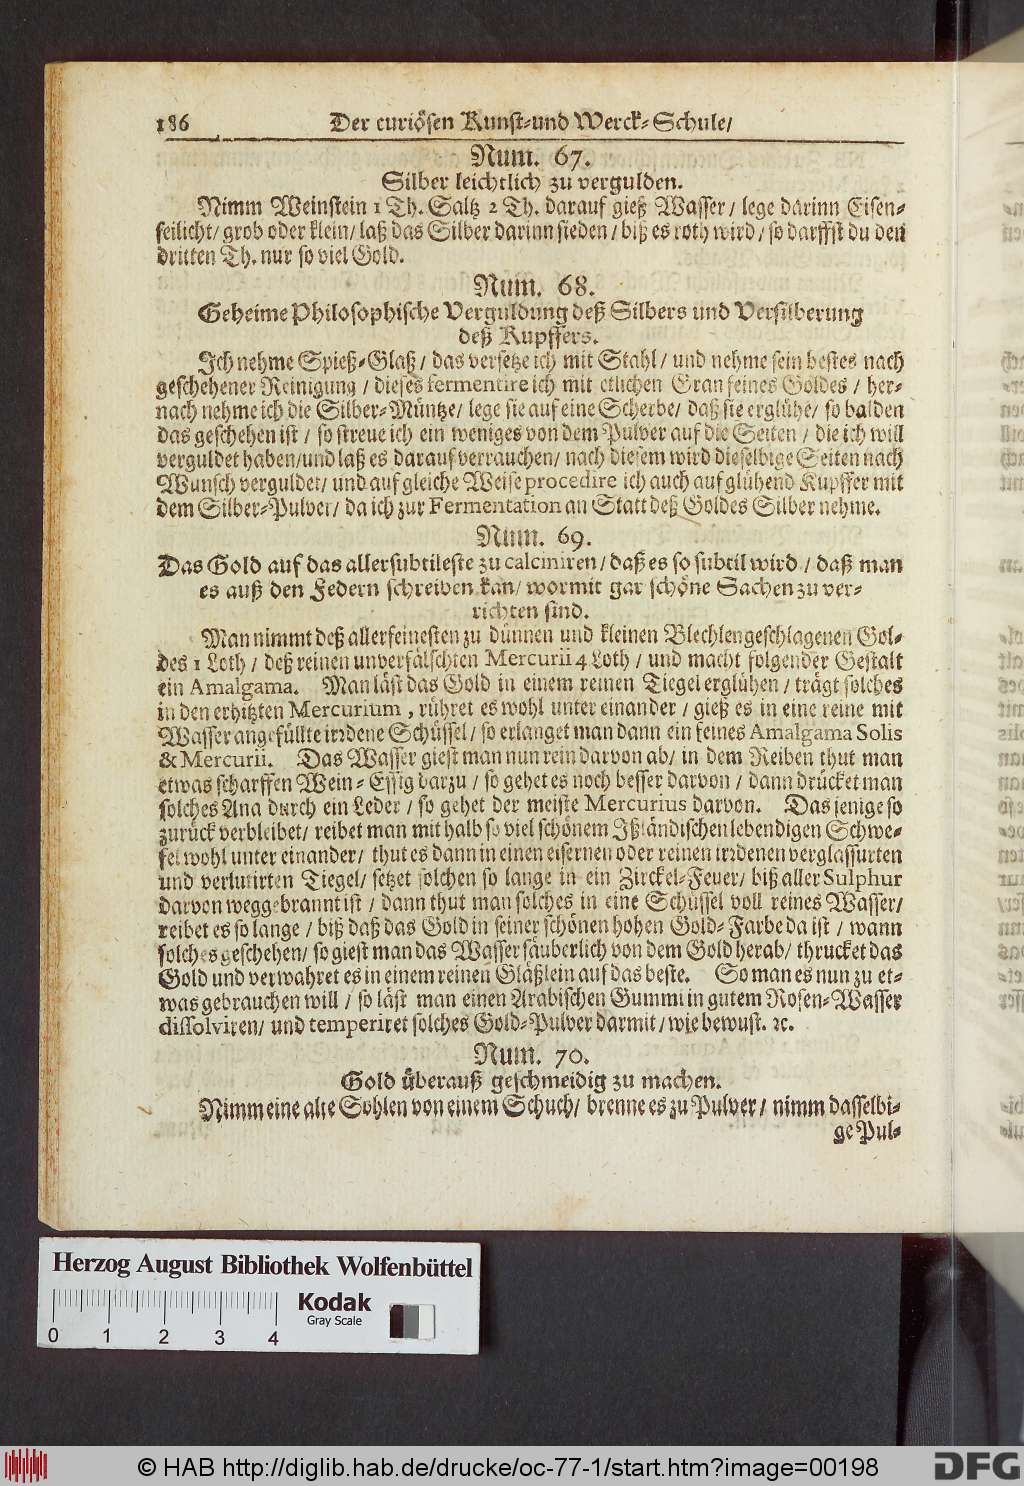 186 Der curiösen Kunst-und Werck-Schule/
Num. 67.
Silber leichtlich zu vergulden.
Nimm Weinstein 1 Th. Saltz 2 Th. darauf gieß Wasser/ lege darinn Eisen-
feilicht/ grob oder klein/ laß das Silber darinn sieden/ biß es roth wird/ so darffst du den
dritten Th. nur so viel Gold.
Num. 68.
Geheime Philosophische Verguldung deß Silbers und Versilberung
deß Kupffers.
Ich nehme Spieß-Glaß/ das versetze ich mit Stahl/ und nehme sein bestes nach
geschehener Reinigung/ dieses fermentire ich mit etlichen Gran feines Goldes/ her-
nach nehme ich die Silber-Müntze/ lege sie auf eine Scherbe/ daß sie erglühe/ so balden
das geschehen ist/ so streue ich ein weniges von dem Pulver auf die Seiten/ die ich will
verguldet haben/ und laß es darauf verrauchen/ nach diesem wird dieselbige Seiten nach
Wunsch verguldet/ und auf gleiche Weise procedire ich auch auf glühend Kupffer mit
dem Silber-Pulver/ da ich zur Fermentation an Statt deß Goldes Silber nehme.
Num. 69.
Das Gold auf das allersubtileste zu calciniren/ daß es so subtil wird/ daß man
es auß den Federn schreiben kan/ wormit gar schöne Sachen zu ver-
richten sind.
Man nimmt deß allerfeinesten zu dünnen und kleinen Blechlen geschlagenen Gol-
des 1 Loth/ deß reinen unverfälschten Mercurii 4 Loth/ und macht folgender Gestalt
ein Amalgama. Man läst das Gold in einem reinen Tiegel erglühen/ trägt solches
in den erhitzten Mercurium, rühret es wohl unter einander/ gieß es in eine reine mit
Wasser angefüllte irrdene Schüssel/ so erlanget man dann ein feines Amalgama Solis
& Mercurii. Das Wasser giest man nun rein darvon ab/ in dem Reiben thut man
etwas scharffen Wein-Essig darzu/ so gehet es noch besser darvon/ dann drücket man
solches Ana durch ein Leder/ so gehet der meiste Mercurius darvon. Das jenige so
zurück verbleibet/ reibet man mit halb so viel schönem Ißländischen lebendigen Schwe-
fel wohl unter einander/ thut es dann in einen eisernen oder reinen irrdenen verglassurten
und verlutirten Tiegel/ setzet solchen so lange in ein Zirckel-Feuer/ biß aller Sulphur
darvon weggebrannt ist/ dann thut man solches in eine Schüssel voll reines Wasser/
reibet es so lange/ biß daß das Gold in seiner schönen hohen Gold-Farbe da ist/ wann
solches geschehen/ so giest man das Wasser säuberlich von dem Gold herab/ thrucket das
Gold und verwahret es in einem reinen Gläßlein auf das beste. So man es nun zu et-
was gebrauchen will/ so läst man einen Arabischen Gummi in gutem Rosen-Wasser
dissolviren/ und temperiret solches Gold-Pulver darmit/ wie bewust. ꝛc.
Num. 70.
Gold überauß geschmeidig zu machen.
Nimm eine alte Sohlen von einem Schuch/ brenne es zu Pulver/ nimm dasselbi-
ge Pul-
Herzog August Bibliothek Wolfenbüttel
Kodak
Gray Scale
0 1 2 3 4
© HAB http://diglib.hab.de/drucke/oc-77-1/start.htm?image=00198
DFG